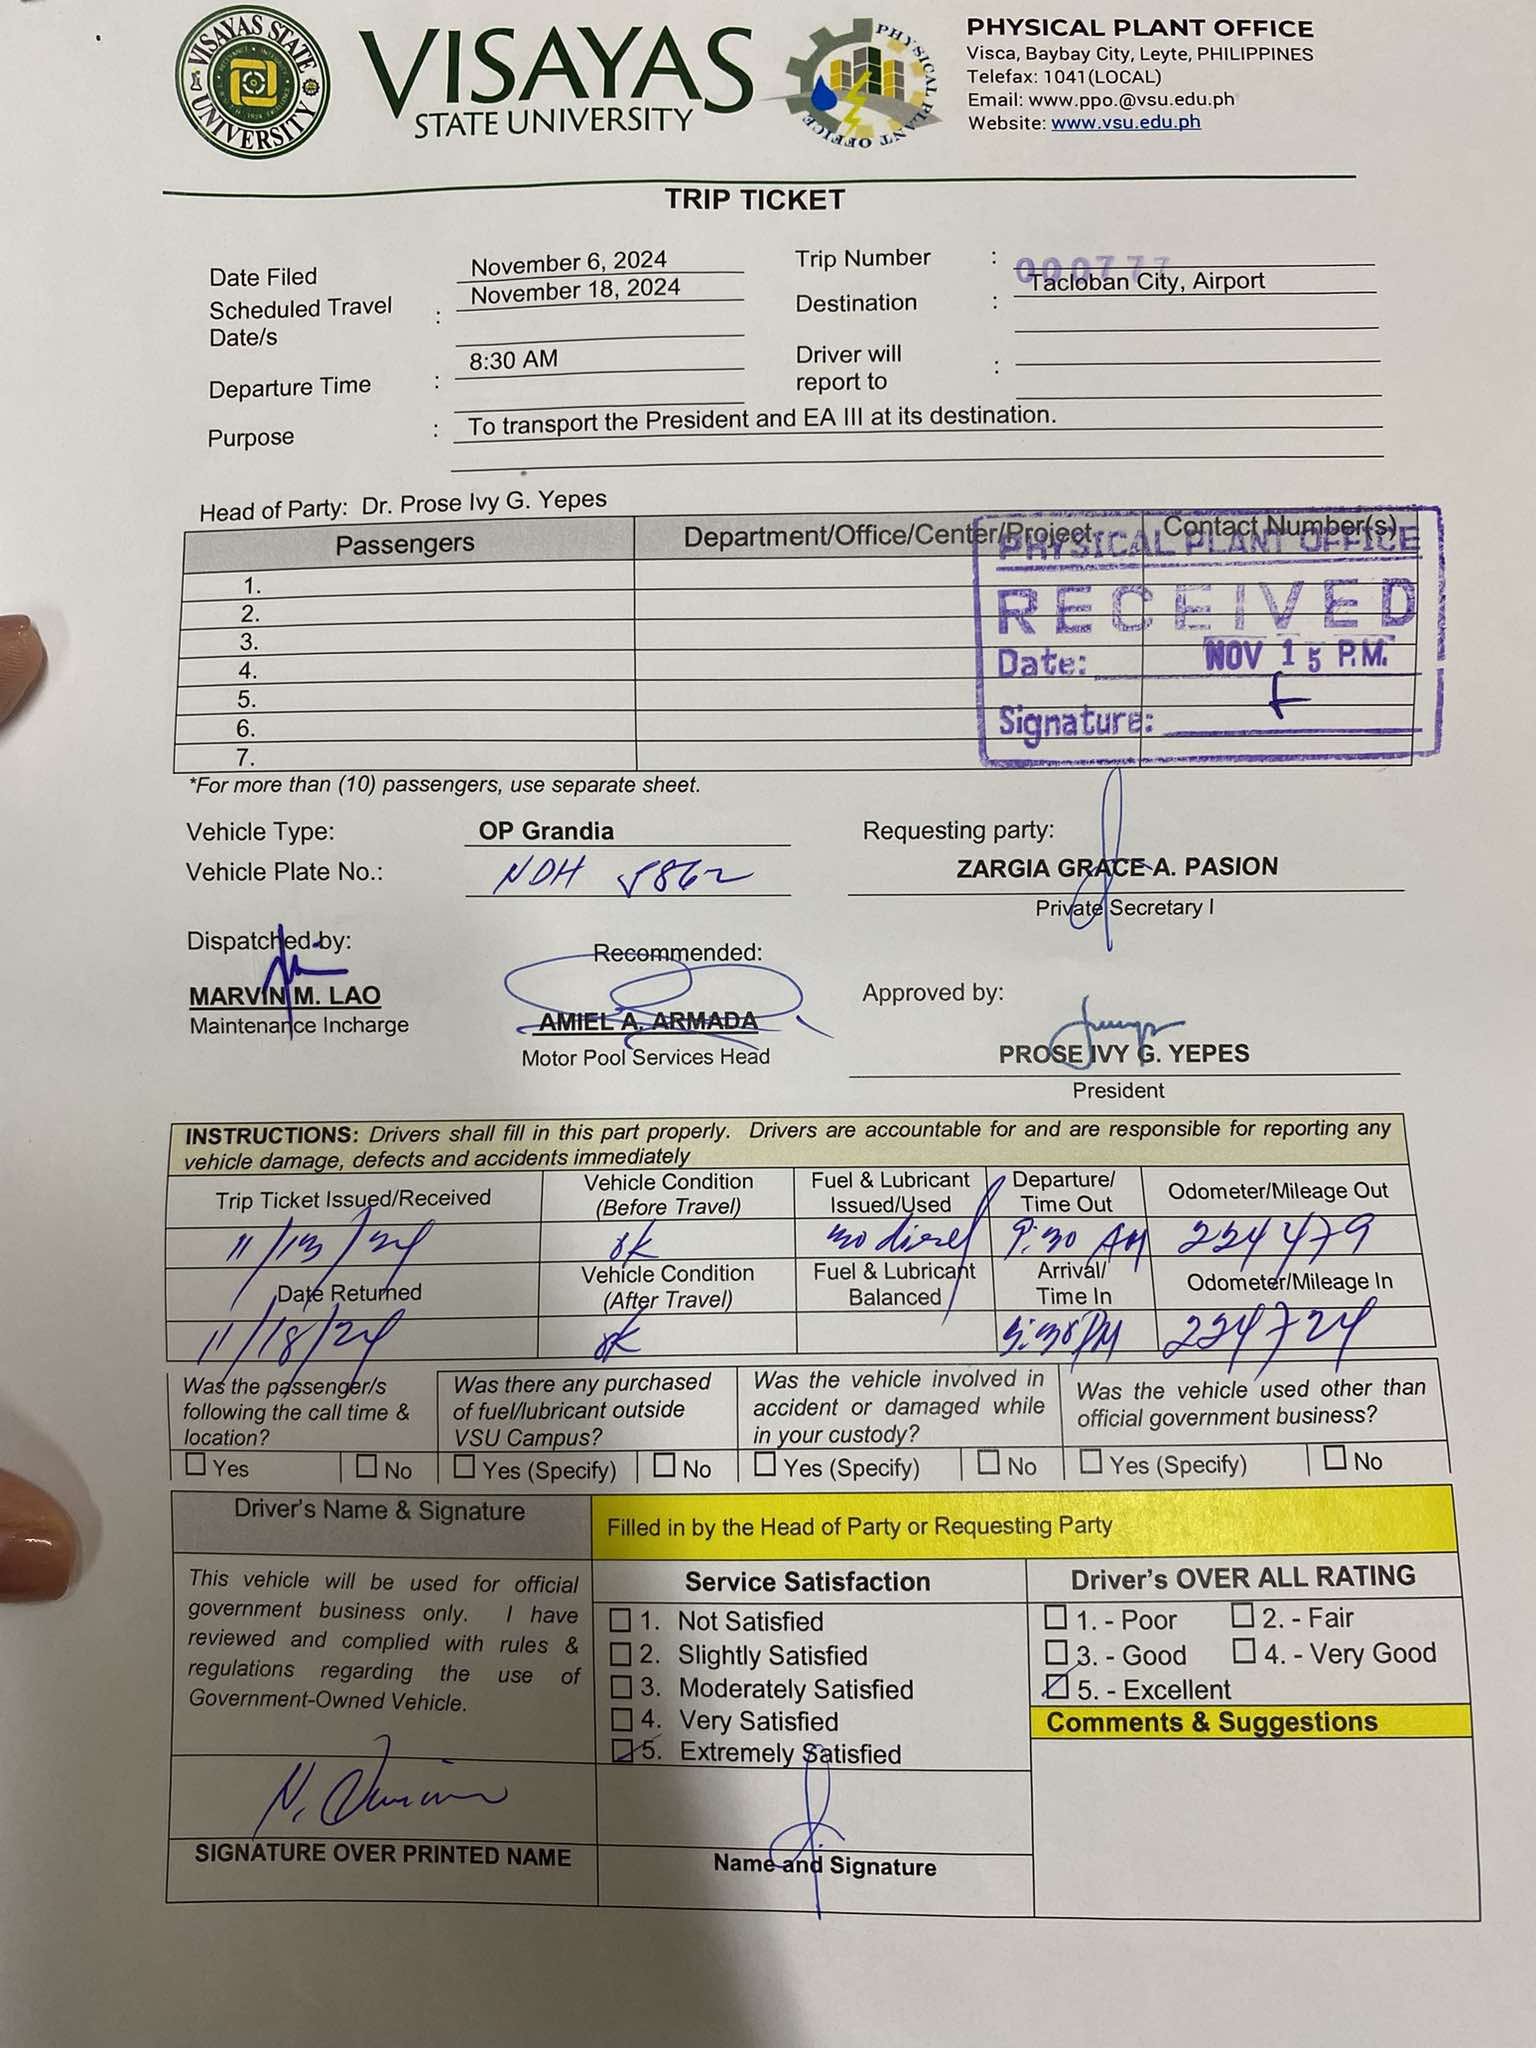 VISAYAS STATE UNIVERSITY
VISAYAS
STATE UNIVERSITY
PHYSICAL PLANT OFFICE
PHYSICAL PLANT OFFICE
Visca, Baybay City, Leyte, PHILIPPINES
Telefax: 1041(LOCAL)
Email: www.ppo.@vsu.edu.ph
Website: www.vsu.edu.ph
TRIP TICKET
Date Filed November 6, 2024 Trip Number : 000777
Scheduled Travel Date/s : November 18, 2024 Destination : Tacloban City, Airport
Departure Time : 8:30 AM Driver will report to :
Purpose : To transport the President and EA III at its destination.
Head of Party: Dr. Prose Ivy G. Yepes
Passengers Department/Office/Center/Project Contact Number(s)
1.
2.
3.
4.
5.
6.
7.
PHYSICAL PLANT OFFICE
RECEIVED
Date: NOV 15 P.M.
Signature:
*For more than (10) passengers, use separate sheet.
Vehicle Type: OP Grandia Requesting party:
Vehicle Plate No.: NDH 5862 ZARGIA GRACE A. PASION
Private Secretary I
Dispatched by: Recommended:
MARVIN M. LAO AMIEL A. ARMADA Approved by:
Maintenance Incharge Motor Pool Services Head PROSE IVY G. YEPES
President
INSTRUCTIONS: Drivers shall fill in this part properly. Drivers are accountable for and are responsible for reporting any
vehicle damage, defects and accidents immediately
Trip Ticket Issued/Received Vehicle Condition (Before Travel) Fuel & Lubricant Issued/Used Departure/ Time Out Odometer/Mileage Out
11/13/24 ok 30 diesel 9:30 AM 224479
Date Returned Vehicle Condition (After Travel) Fuel & Lubricant Balanced Arrival/ Time In Odometer/Mileage In
11/18/24 ok 5:30PM 224724
Was the passenger/s following the call time & location?
Yes No
Was there any purchased of fuel/lubricant outside VSU Campus?
Yes (Specify) No
Was the vehicle involved in accident or damaged while in your custody?
Yes (Specify) No
Was the vehicle used other than official government business?
Yes (Specify) No
Driver's Name & Signature
Filled in by the Head of Party or Requesting Party
This vehicle will be used for official
government business only. I have
reviewed and complied with rules &
regulations regarding the use of
Government-Owned Vehicle.
SIGNATURE OVER PRINTED NAME
Service Satisfaction
1. Not Satisfied
2. Slightly Satisfied
3. Moderately Satisfied
4. Very Satisfied
5. Extremely Satisfied
Name and Signature
Driver's OVER ALL RATING
1. - Poor 2. - Fair
3. - Good 4. - Very Good
5. - Excellent
Comments & Suggestions